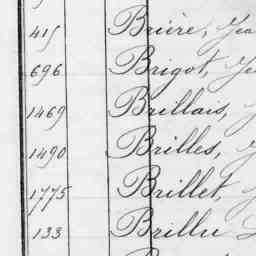 415 Brière, Jea
696 Brigot, Je
1469 Brillais, J
1490 Brilles, J
1775 Brillet, J
133 Brillu